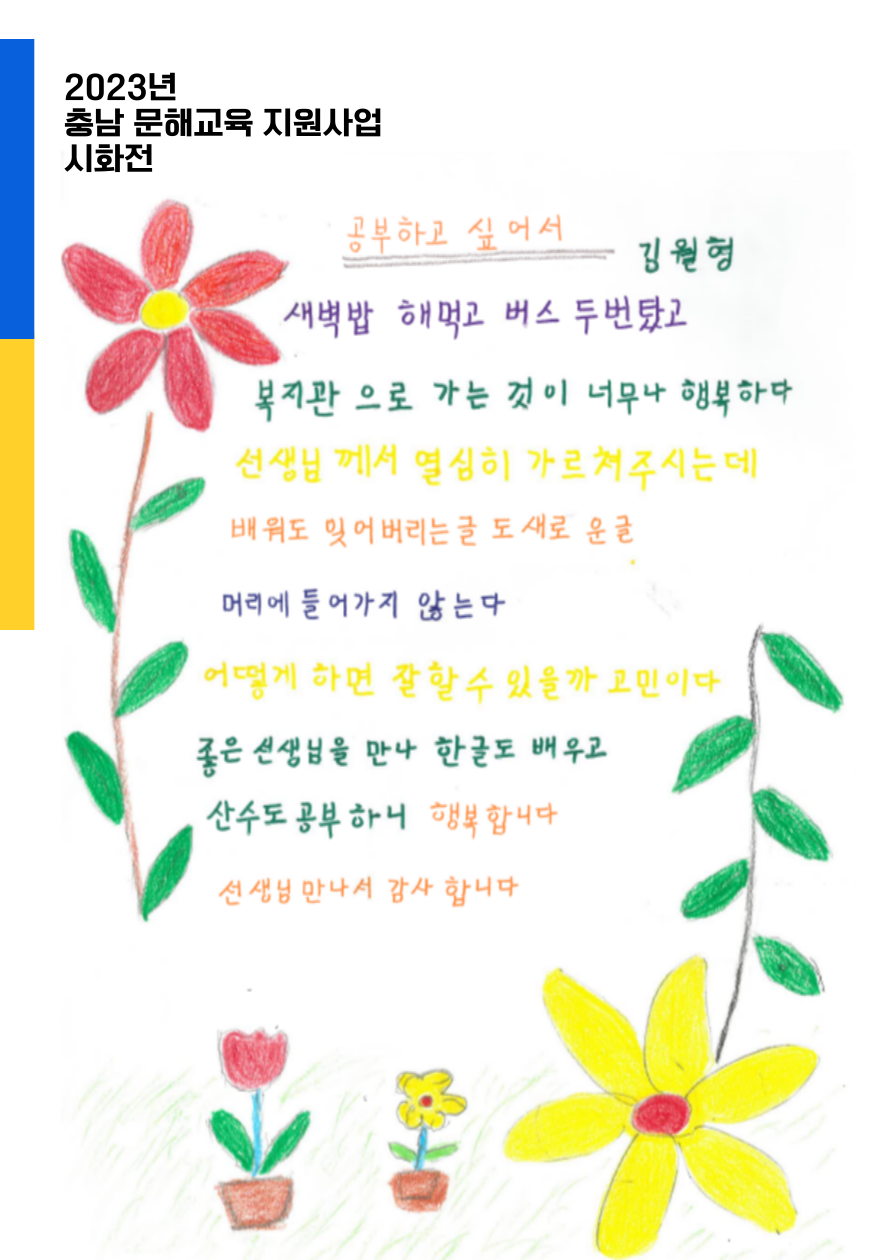 2023년
충남 문해교육 지원사업
시화전
공부하고 싶어서
김월형
새벽밥 해먹고 버스 두번탔고
복지관 으로 가는 것이 너무나 행복하다
선생님 께서 열심히 가르쳐주시는데
배워도 잊어버리는글 도새로 운글
머리에 들어가지 않는다
어떻게 하면 잘할수 있을까 고민이다
좋은 선생님을 만나 한글도 배우고
산수도공부하니 행복합니다
선생님만나서 감사 합니다